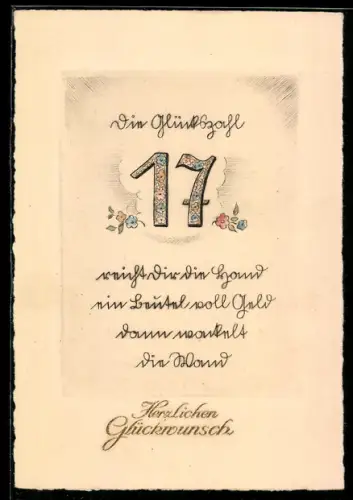 Die Glückszahl
17
reicht Dir die Hand
ein Beutel voll Geld
dann wackelt
die Wand
Herzlichen
Glückwunsch